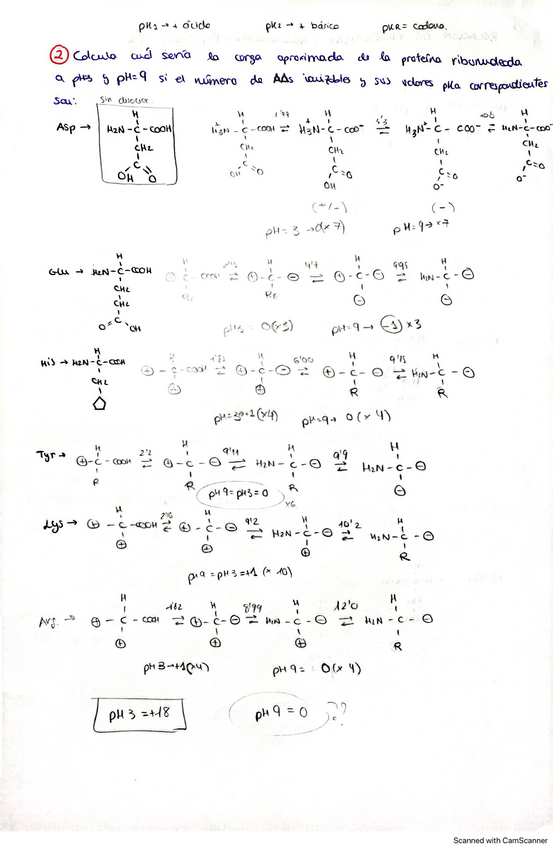 pK1 → + ácido pK2 → + básico pKR = cadena.
② Calcula cuál sería la carga aproximada de la proteína ribonucleada
a pH=3 y pH=9 si el número de AAs ionizables y sus valores pKa correspondientes
son: sin disolver
H H H H H
Asp → H2N - C - COOH H3N+ - C - COOH 1'99 ⇌ H3N+ - C - COO- ⇌ H3N+ - C - COO- ⇌ H2N - C - COO-
CH2 CH2 CH2 CH2 CH2
C C=O C=O C=O C=O
OH O OH OH O- O-
(+/-) (-)
pH = 3 → 0(x7) pH = 9 → x7
H H H H H
Glu → H2N - C - COOH ⊕ - C - COOH ⇌ ⊕ - C - ⊖ 4'7 ⇌ ⊕ - C - ⊖ ⇌ H2N - C - ⊖
CH2 RC ⊖ ⊖
CH2
C
O OH
pH=3 = 0(x3) pH=9 → (-1) x3
H H H H H
His → H2N - C - COOH ⊕ - C - COOH 1'82 ⇌ ⊕ - C - ⊖ 6'00 ⇌ ⊕ - C - ⊖ 9'15 ⇌ H2N - C - ⊖
CH2 ⊕ ⊕ R R
pH=3 → +1 (x4) pH=9 → 0 (x4)
H H H H
Tyr → ⊕ - C - COOH 2'2 ⇌ ⊕ - C - ⊖ 9'11 ⇌ H2N - C - ⊖ 9'9 ⇌ H2N - C - ⊖
R R R ⊖
pH 9 = pH 3 = 0 x6
H H H H
Lys → ⊕ - C - COOH ⇌ ⊕ - C - ⊖ 9'2 ⇌ H2N - C - ⊖ 10'2 ⇌ H2N - C - ⊖
⊕ ⊕ ⊕ R
pH 9 = pH 3 = +1 (x 10)
H H H H
Arg. → ⊕ - C - COOH 1'82 ⇌ ⊕ - C - ⊖ 8'99 ⇌ H2N - C - ⊖ 12'0 ⇌ H2N - C - ⊖
⊕ ⊕ ⊕ R
pH 3 → +1(x4) pH 9 = 0 (x 4)
pH 3 = +18 pH 9 = 0 ??
Scanned with CamScanner